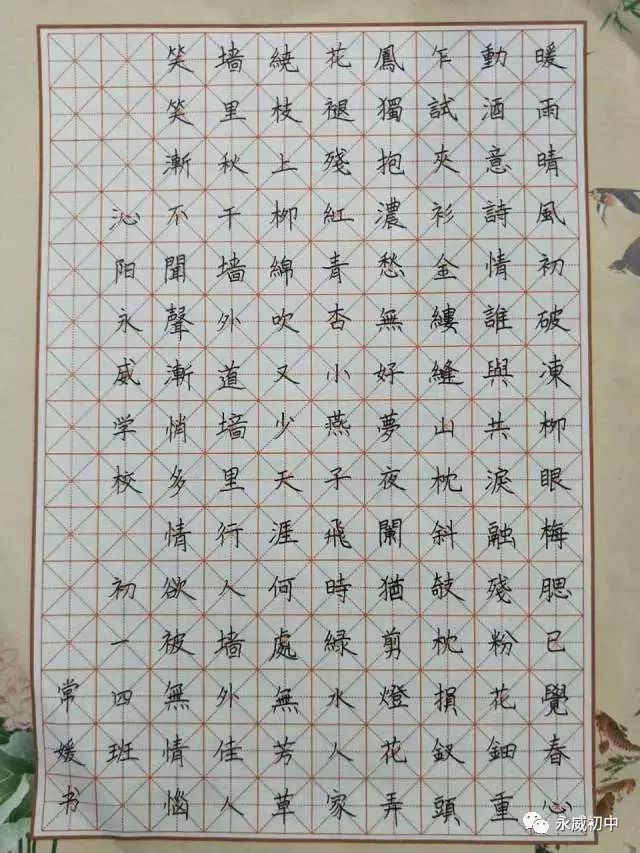 暖雨晴風初破凍柳眼梅腮已覺春心
動酒意詩情誰與共淚融殘粉花鈿重
乍試夾衫金縷縫山枕斜敧枕損釵頭
鳳獨抱濃愁無好夢夜闌猶剪燈花弄
花褪殘紅青杏小燕子飛時緑水人家
繞枝上柳綿吹又少天涯何處無芳草
墙里秋千墙外道墙里行人墙外佳人
笑笑漸不聞聲漸悄多情欲被無情惱
沁阳永威学校 初一四班
常媛书
永威初中